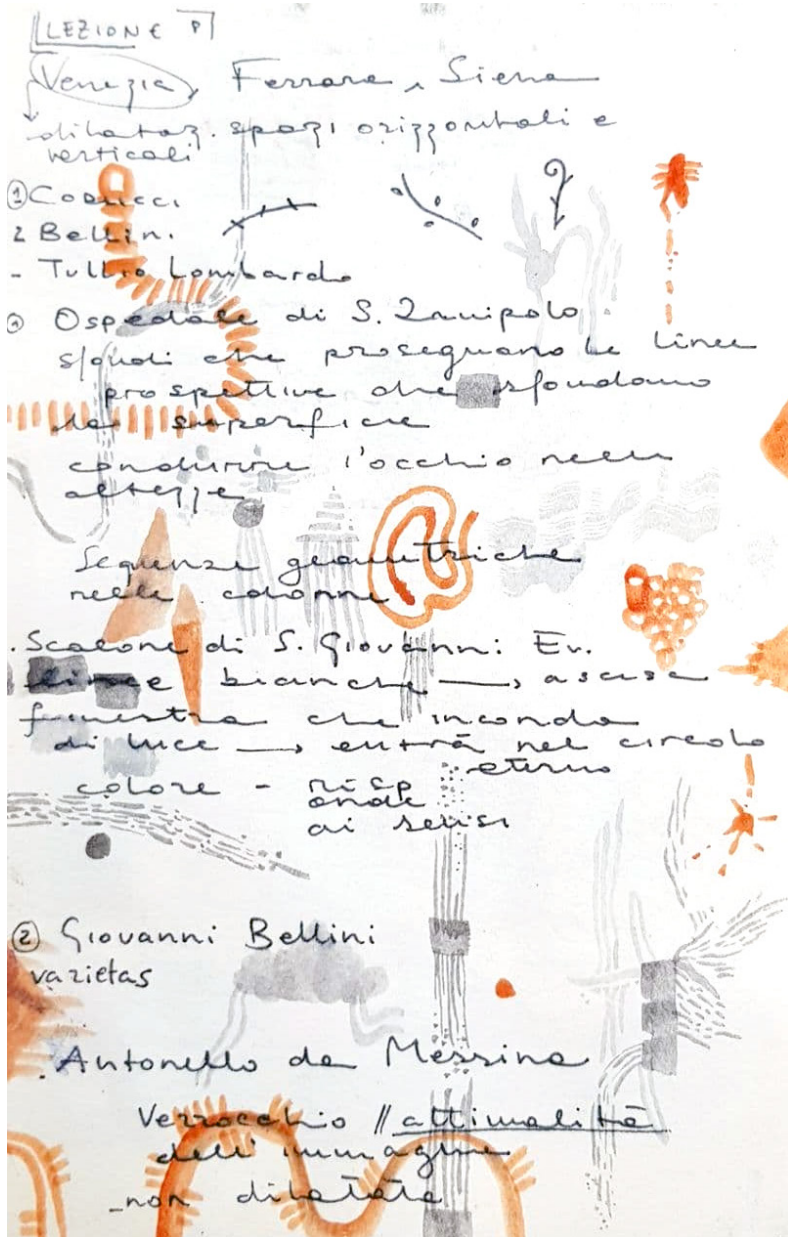 LEZIONE
Venezia, Ferrara, Siena
dilataz. spazi orizzontali e
verticali
① Coducci
2 Bellini
- Tullio Lombardo
Ospedale di S. Zanipolo
sfondi che proseguano le linee
prospettive che sfondano
la superficie
condurre l'occhio nelle
altezze
Sequenze geometriche
nelle colonne
. Scalone di S. Giovanni Ev.
linee bianche → ascesa
finestra che inonda
di luce → entra nel circolo
eterno
colore - risp
onde
ai sensi
② Giovanni Bellini
varietas
. Antonello da Messina
Verrocchio // attimalità
dell'immagine
- non dilatata